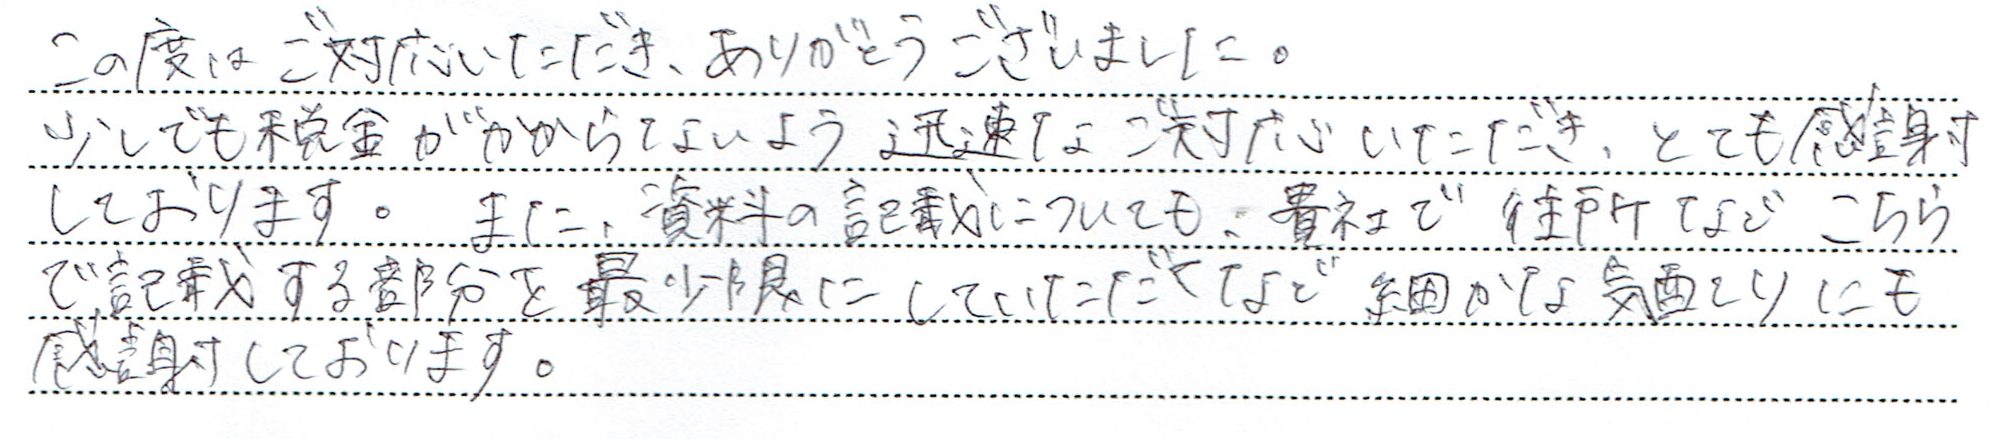 この度はご対応いただき、ありがとうございました。
少しでも税金がかからないよう迅速なご対応いただき、とても感謝
しております。また、資料の記載についても、貴社で住所などこちら
で記載する部分を最少限にしていただくなど細かな気配りにも
感謝しております。